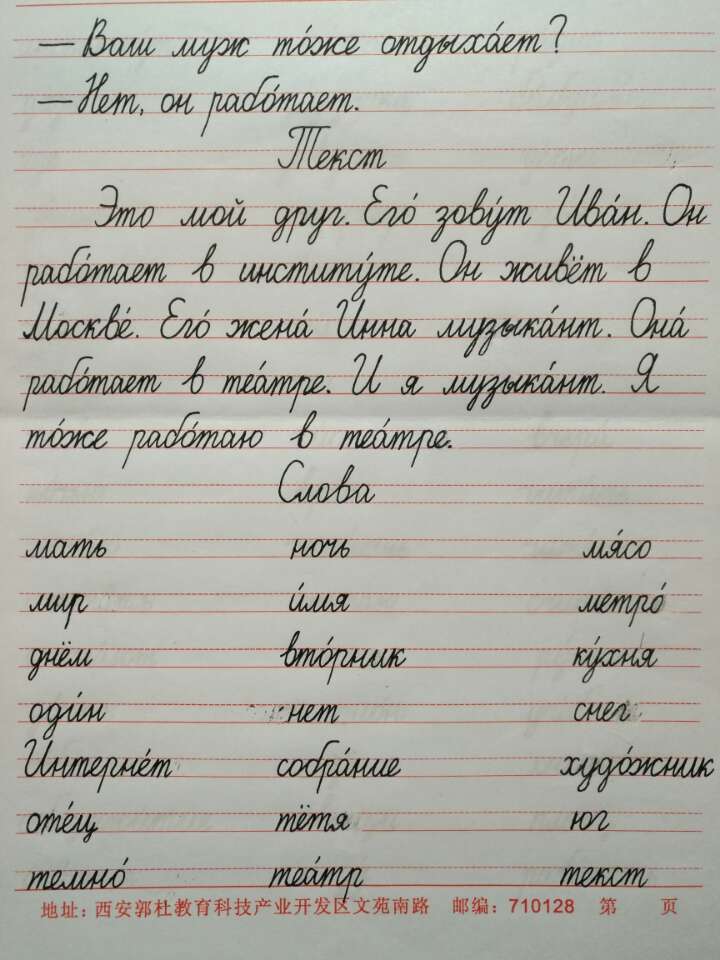 — Ваш муж то́же отдыха́ет?
— Нет, он рабо́тает.
Текст
Это мой друг. Его́ зову́т Ива́н. Он
рабо́тает в институ́те. Он живёт в
Москве́. Его́ жена́ Инна музыка́нт. Она́
рабо́тает в теа́тре. И я музыка́нт. Я
то́же рабо́таю в теа́тре.
Слова
мать ночь мя́со
мир и́мя метро́
днём вто́рник ку́хня
оди́н нет снег
Интерне́т собра́ние худо́жник
оте́ц тётя юг
темно́ теа́тр текст
地址: 西安郭杜教育科技产业开发区文苑南路 邮编: 710128 第 页